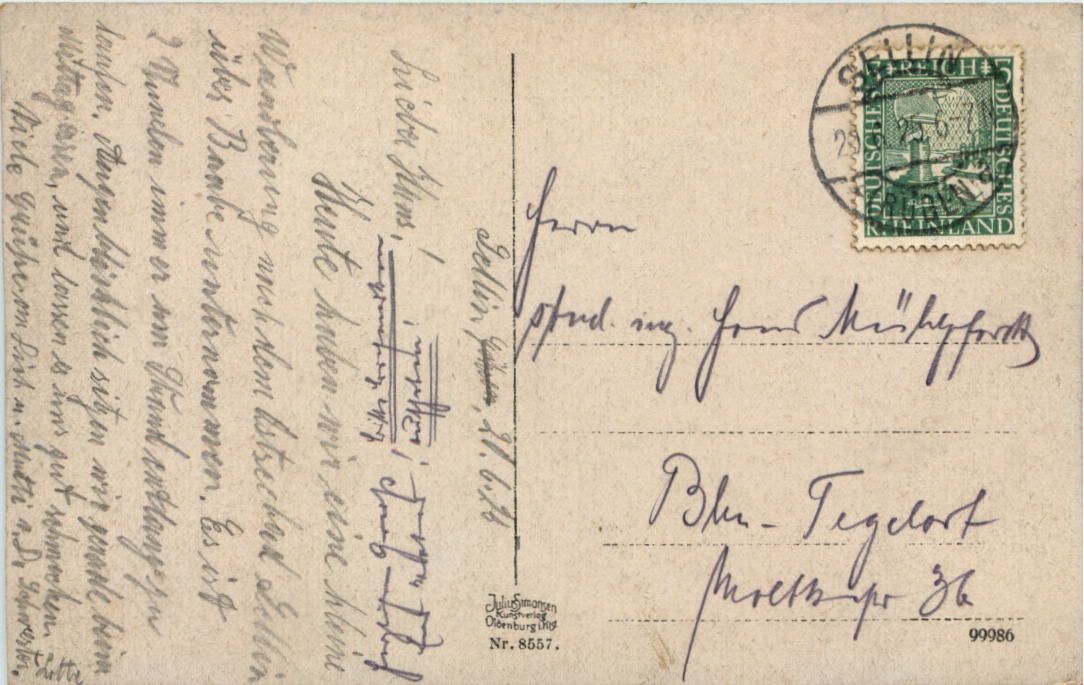 Sellin, 28.6.26
Lieber Hans!
Heute haben wir eine kleine
Wanderung nach dem Ostseebad Sellin
über Baabe unternommen. Es ist
2 Stunden immer am Strand entlang zu
laufen. Augenblicklich sitzen wir gerade beim
Mittagessen, und lassen es uns gut schmecken.
Viele Grüße an Dich u. Mutti u. Schwester.
Lotte
Gruß
Herrn
stud. ing. Hans Mühlpfordt
Bln-Tegelort
Moltkestr 36
SELLIN
RÜGEN
6-7
DEUTSCHES REICH
5
DEUTSCHES
RHEINLAND
Julius Simonsen
Kunstverlag
Oldenburg i. Hlst.
Nr. 8557.
99986